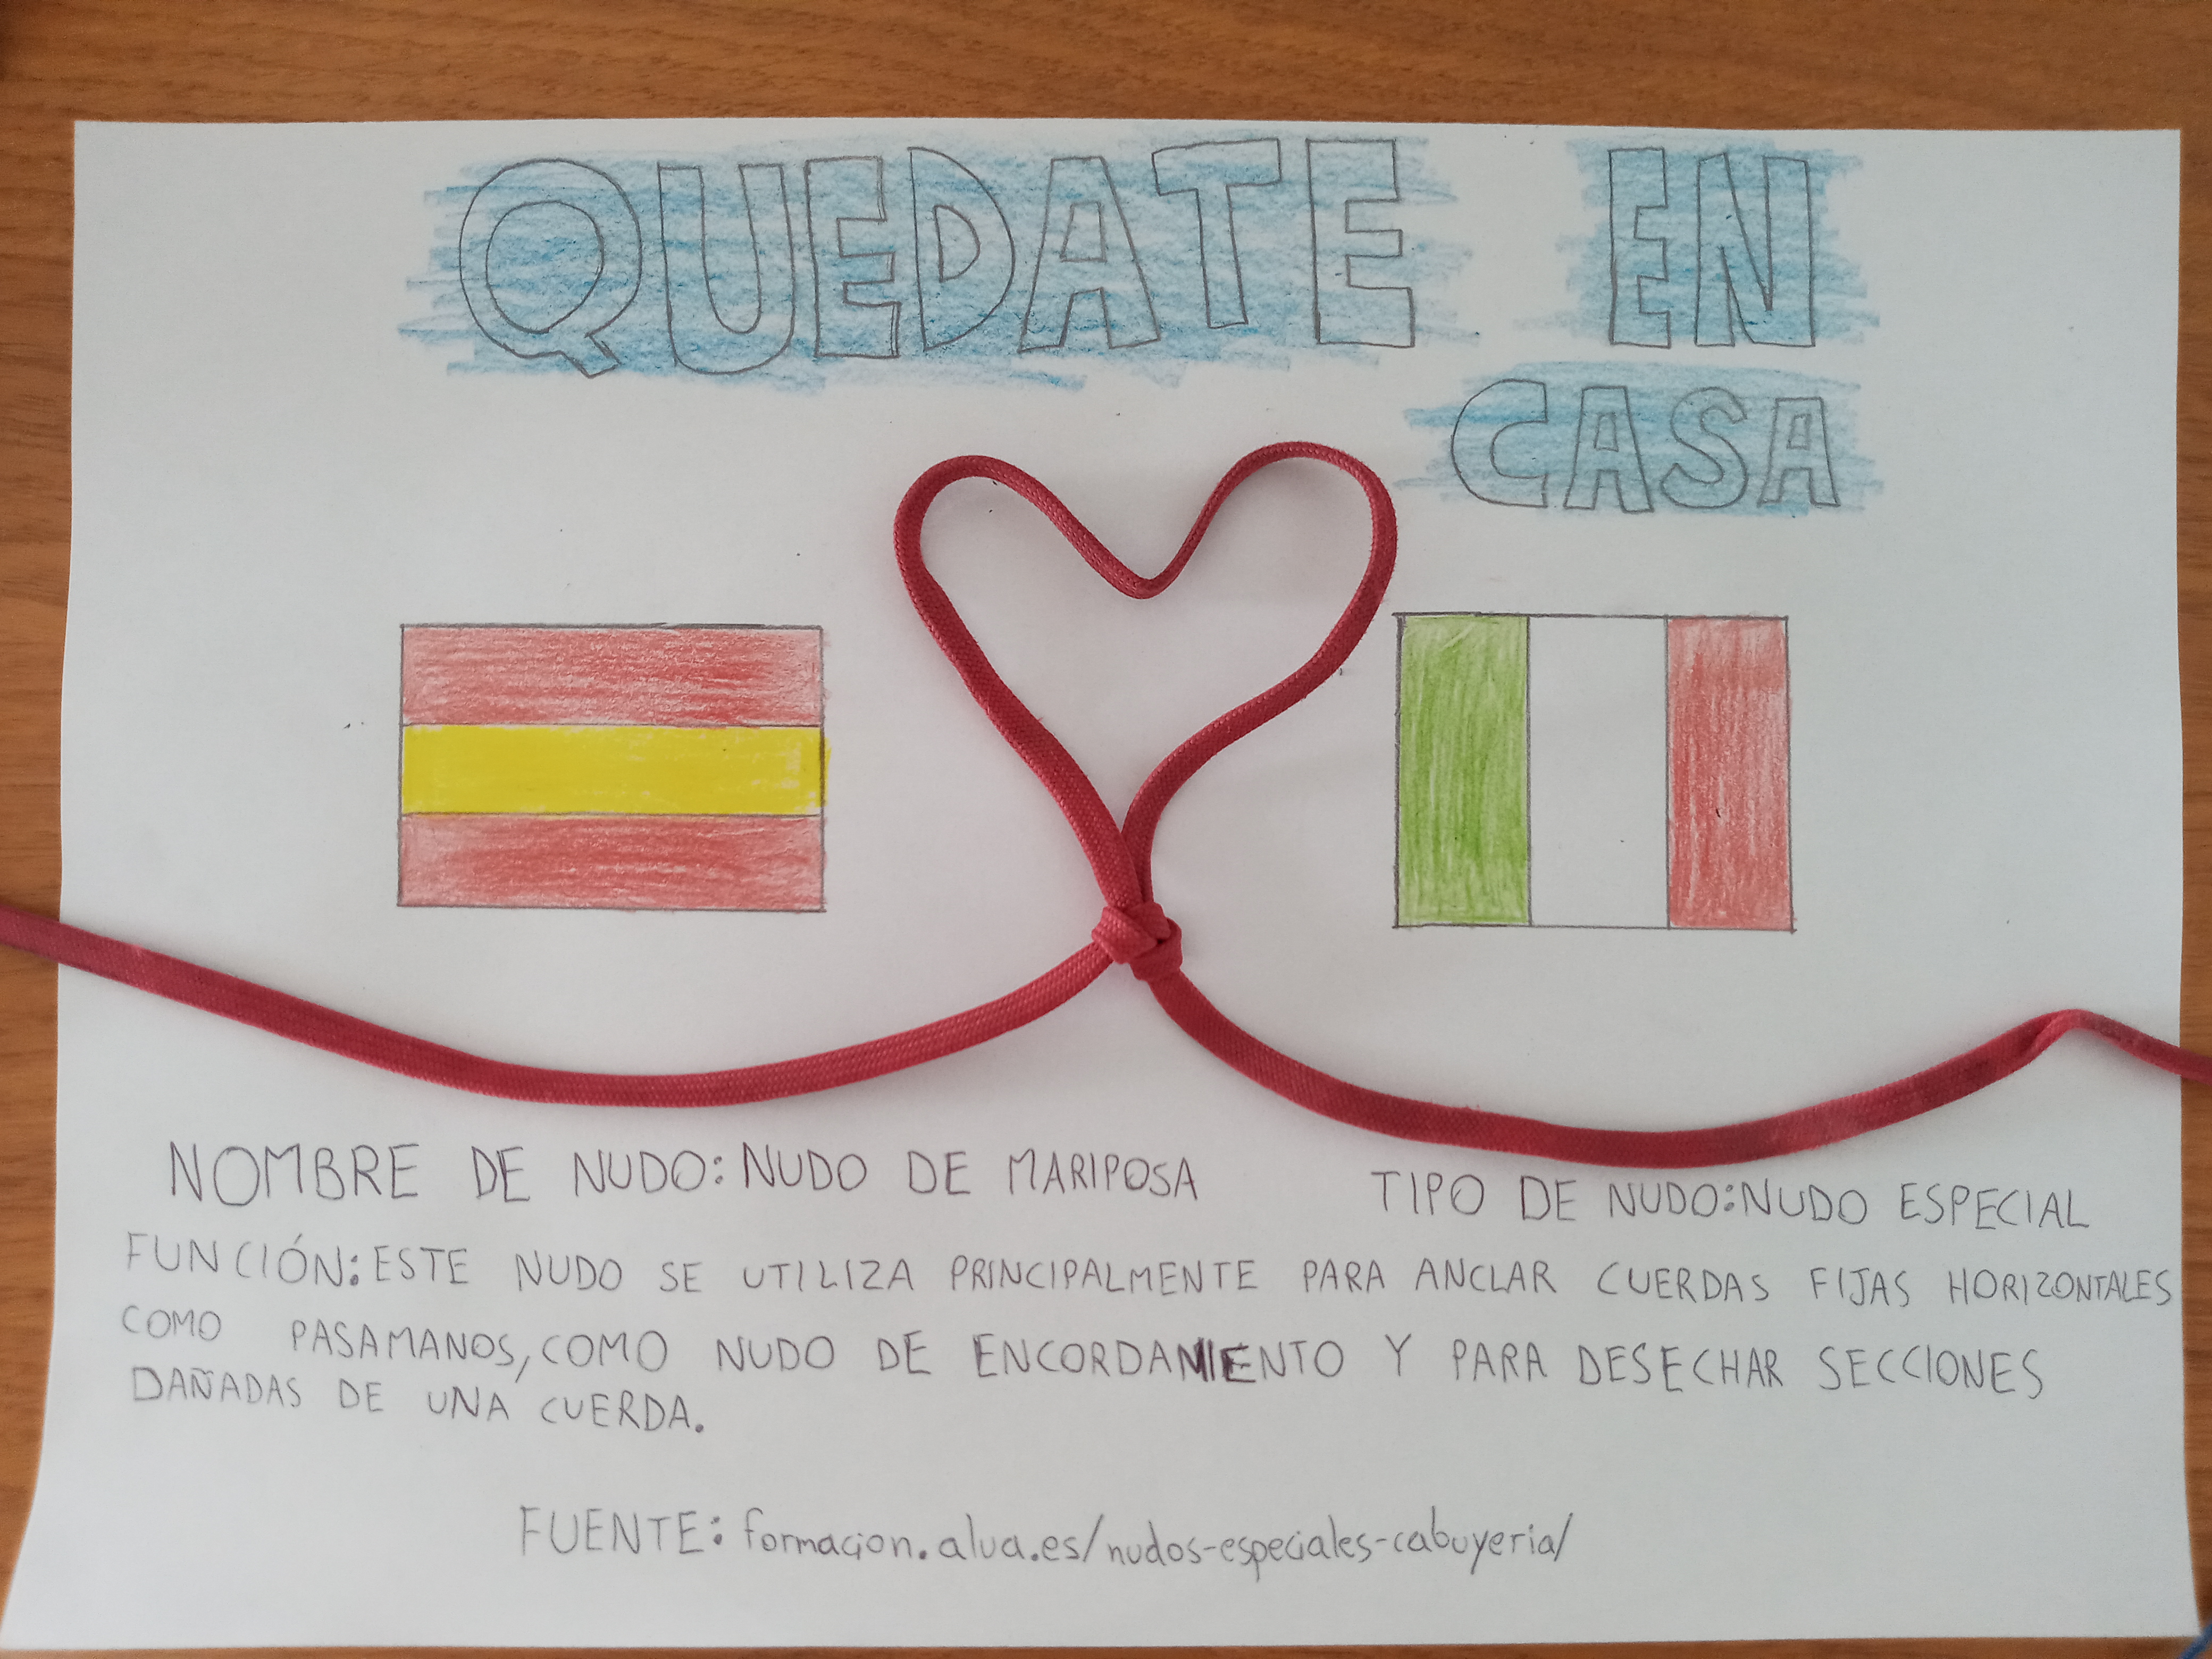 QUEDATE EN
CASA
NOMBRE DE NUDO: NUDO DE MARIPOSA
TIPO DE NUDO: NUDO ESPECIAL
FUNCIÓN: ESTE NUDO SE UTILIZA PRINCIPALMENTE PARA ANCLAR CUERDAS FIJAS HORIZONTALES
COMO PASAMANOS, COMO NUDO DE ENCORDAMIENTO Y PARA DESECHAR SECCIONES
DAÑADAS DE UNA CUERDA.
FUENTE: formacion.alua.es/nudos-especiales-cabuyeria/